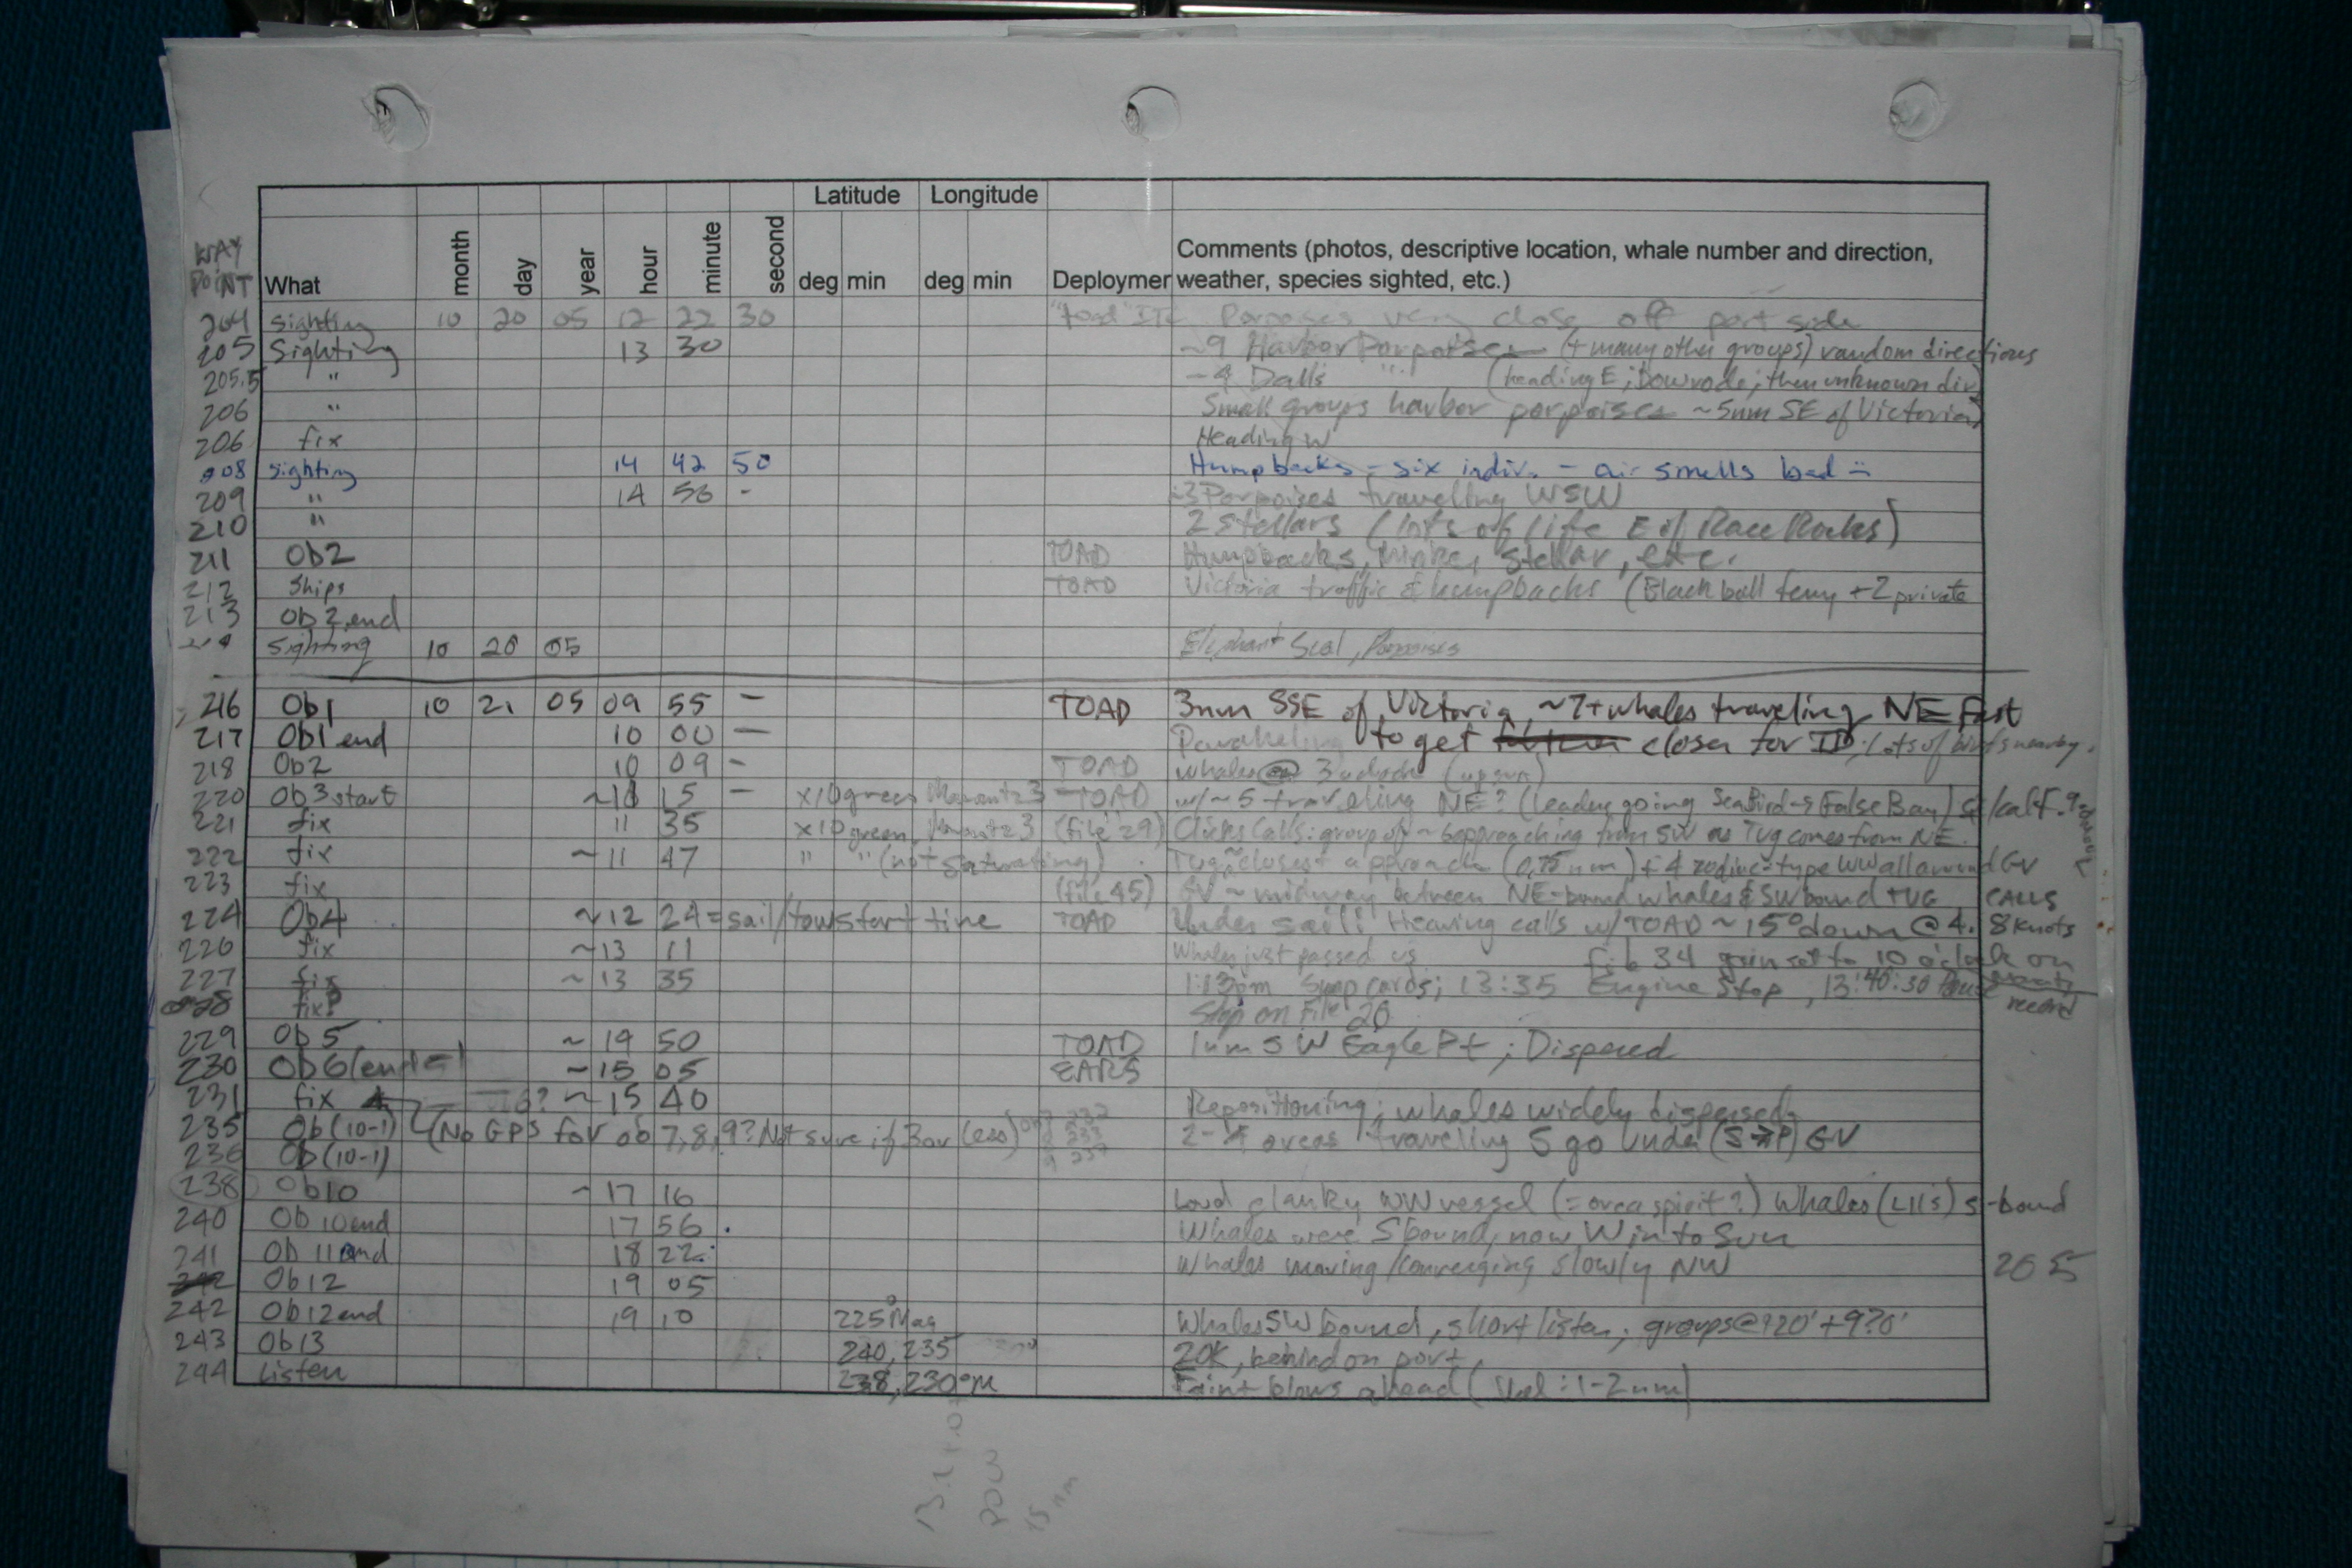 Latitude Longitude
WAY POINT What month day year hour minute second deg min deg min Deploymer Comments (photos, descriptive location, whale number and direction, weather, species sighted, etc.)
204 Sighting 10 20 05 12 22 30 "Toad" ITC Porpoises very close off port side
205 Sighting 13 30 ~9 Harbor Porpoises (+ many other groups) random directions
205.5 " ~4 Dalls " (heading E; bowrode; then unknown dir)
206 " Small groups harbor porpoises ~5nm SE of Victoria
206 fix Heading W
208 sighting 14 42 50 Humpbacks - six indiv. - air smells bad
209 " 14 56 - ~3 Porpoises travelling WSW
210 " 2 stellars (lots of life E of Race Rocks)
211 Ob2 TOAD Humpbacks, minke, stellar, etc.
212 Ships TOAD Victoria traffic & humpbacks (Black ball ferry +2 private
213 Ob2 end
Sighting 10 20 05 Elephant Seal, Porpoises
216 Ob1 10 21 05 09 55 - TOAD 3nm SSE of Victoria, ~7+ whales traveling NE fast
217 Ob1 end 10 00 - Paralleling to get closer for ID; Lots of birds nearby.
218 Ob2 10 09 - TOAD whales @ 3 oclock (up sun)
220 Ob3 start ~10 15 - x10 green Marantz3 TOAD w/ ~5 traveling NE? (leading going SeaBird → False Bay)
221 fix 11 35 x10 green Marantz3 (file 29) Clicks Calls: group of ~6 approaching from SW as Tug comes from NE.
222 fix ~11 47 " " (not saturating) Tug ~closest approach (0.75 nm) + 4 zodiac-type WW all around GV
223 fix (file 45) GV ~ midway between NE-bound whales & SW bound TUG, CALLS
224 Ob4 ~12 24 = sail/tow start time TOAD Under sail! Hearing calls w/ TOAD ~15° down @ 4.8 knots
226 fix ~13 11 Whales just passed us file 34 gain set to 10 o'clock on
227 fix ~13 35 1:13pm Swap cards; 13:35 Engine Stop, 13:40:30 Pause record
228 fix? Stop on File 20
229 Ob5 ~14 50 TOAD 1nm SW Eagle Pt; Dispered
230 Ob6 (end= ~15 05 EARS
231 fix ~15 40 Repositioning; whales widely dispersed
235 Ob(10-1) (No GPS for ob 7,8,9? Not sure if 3 or less) 2-4 orcas traveling S go under (S→P) GV
236 Ob(10-1)
238 Ob10 ~17 16 Loud clanky WW vessel (= orca spirit?) Whales (L11's) S-bound
240 Ob 10 end 17 56 Whales were S bound, now W into Sun
241 Ob 11 end 18 22 Whales moving/converging slowly NW 205
242 Ob12 19 05
242 Ob12 end 19 10 225° Mag Whales SW bound, short listen; groups @
243 Ob13 240, 235 20K, behind on port
244 Listen 238, 230°M Faint blows ahead ( : 1-2nm)